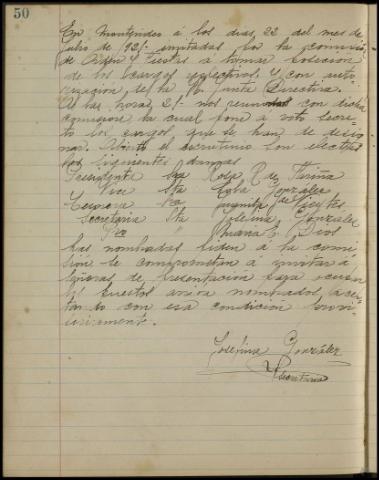 50
En Montevideo á los dias 22 del mes de
julio de 1921. invitadas por la comisión
de Orden y Fiestas a tomar posesión
de los cargos respectivos. y con auto
rización de la H. Junta Directiva.
A las horas 21 nos reunimos con dicha
comisión la cual pone á voto secre
to los cargos, que se han de desig
nar. Abierto el escrutinio son electas
las siguientes damas
Presidenta Sra Rosa P. de Fariña
Vice Sta González
Tesorera Sra Juanita de Freytes
Secretaria Sta Josefina González
Pro " Maria E. Dios
Las nombradas piden á la comi
sión se comprometan á invitar á
señoras de presentación para ocupar
los puestos arriba nominados, acep
tando con esa condición provi
soriamente.
Josefina González
Secretaria